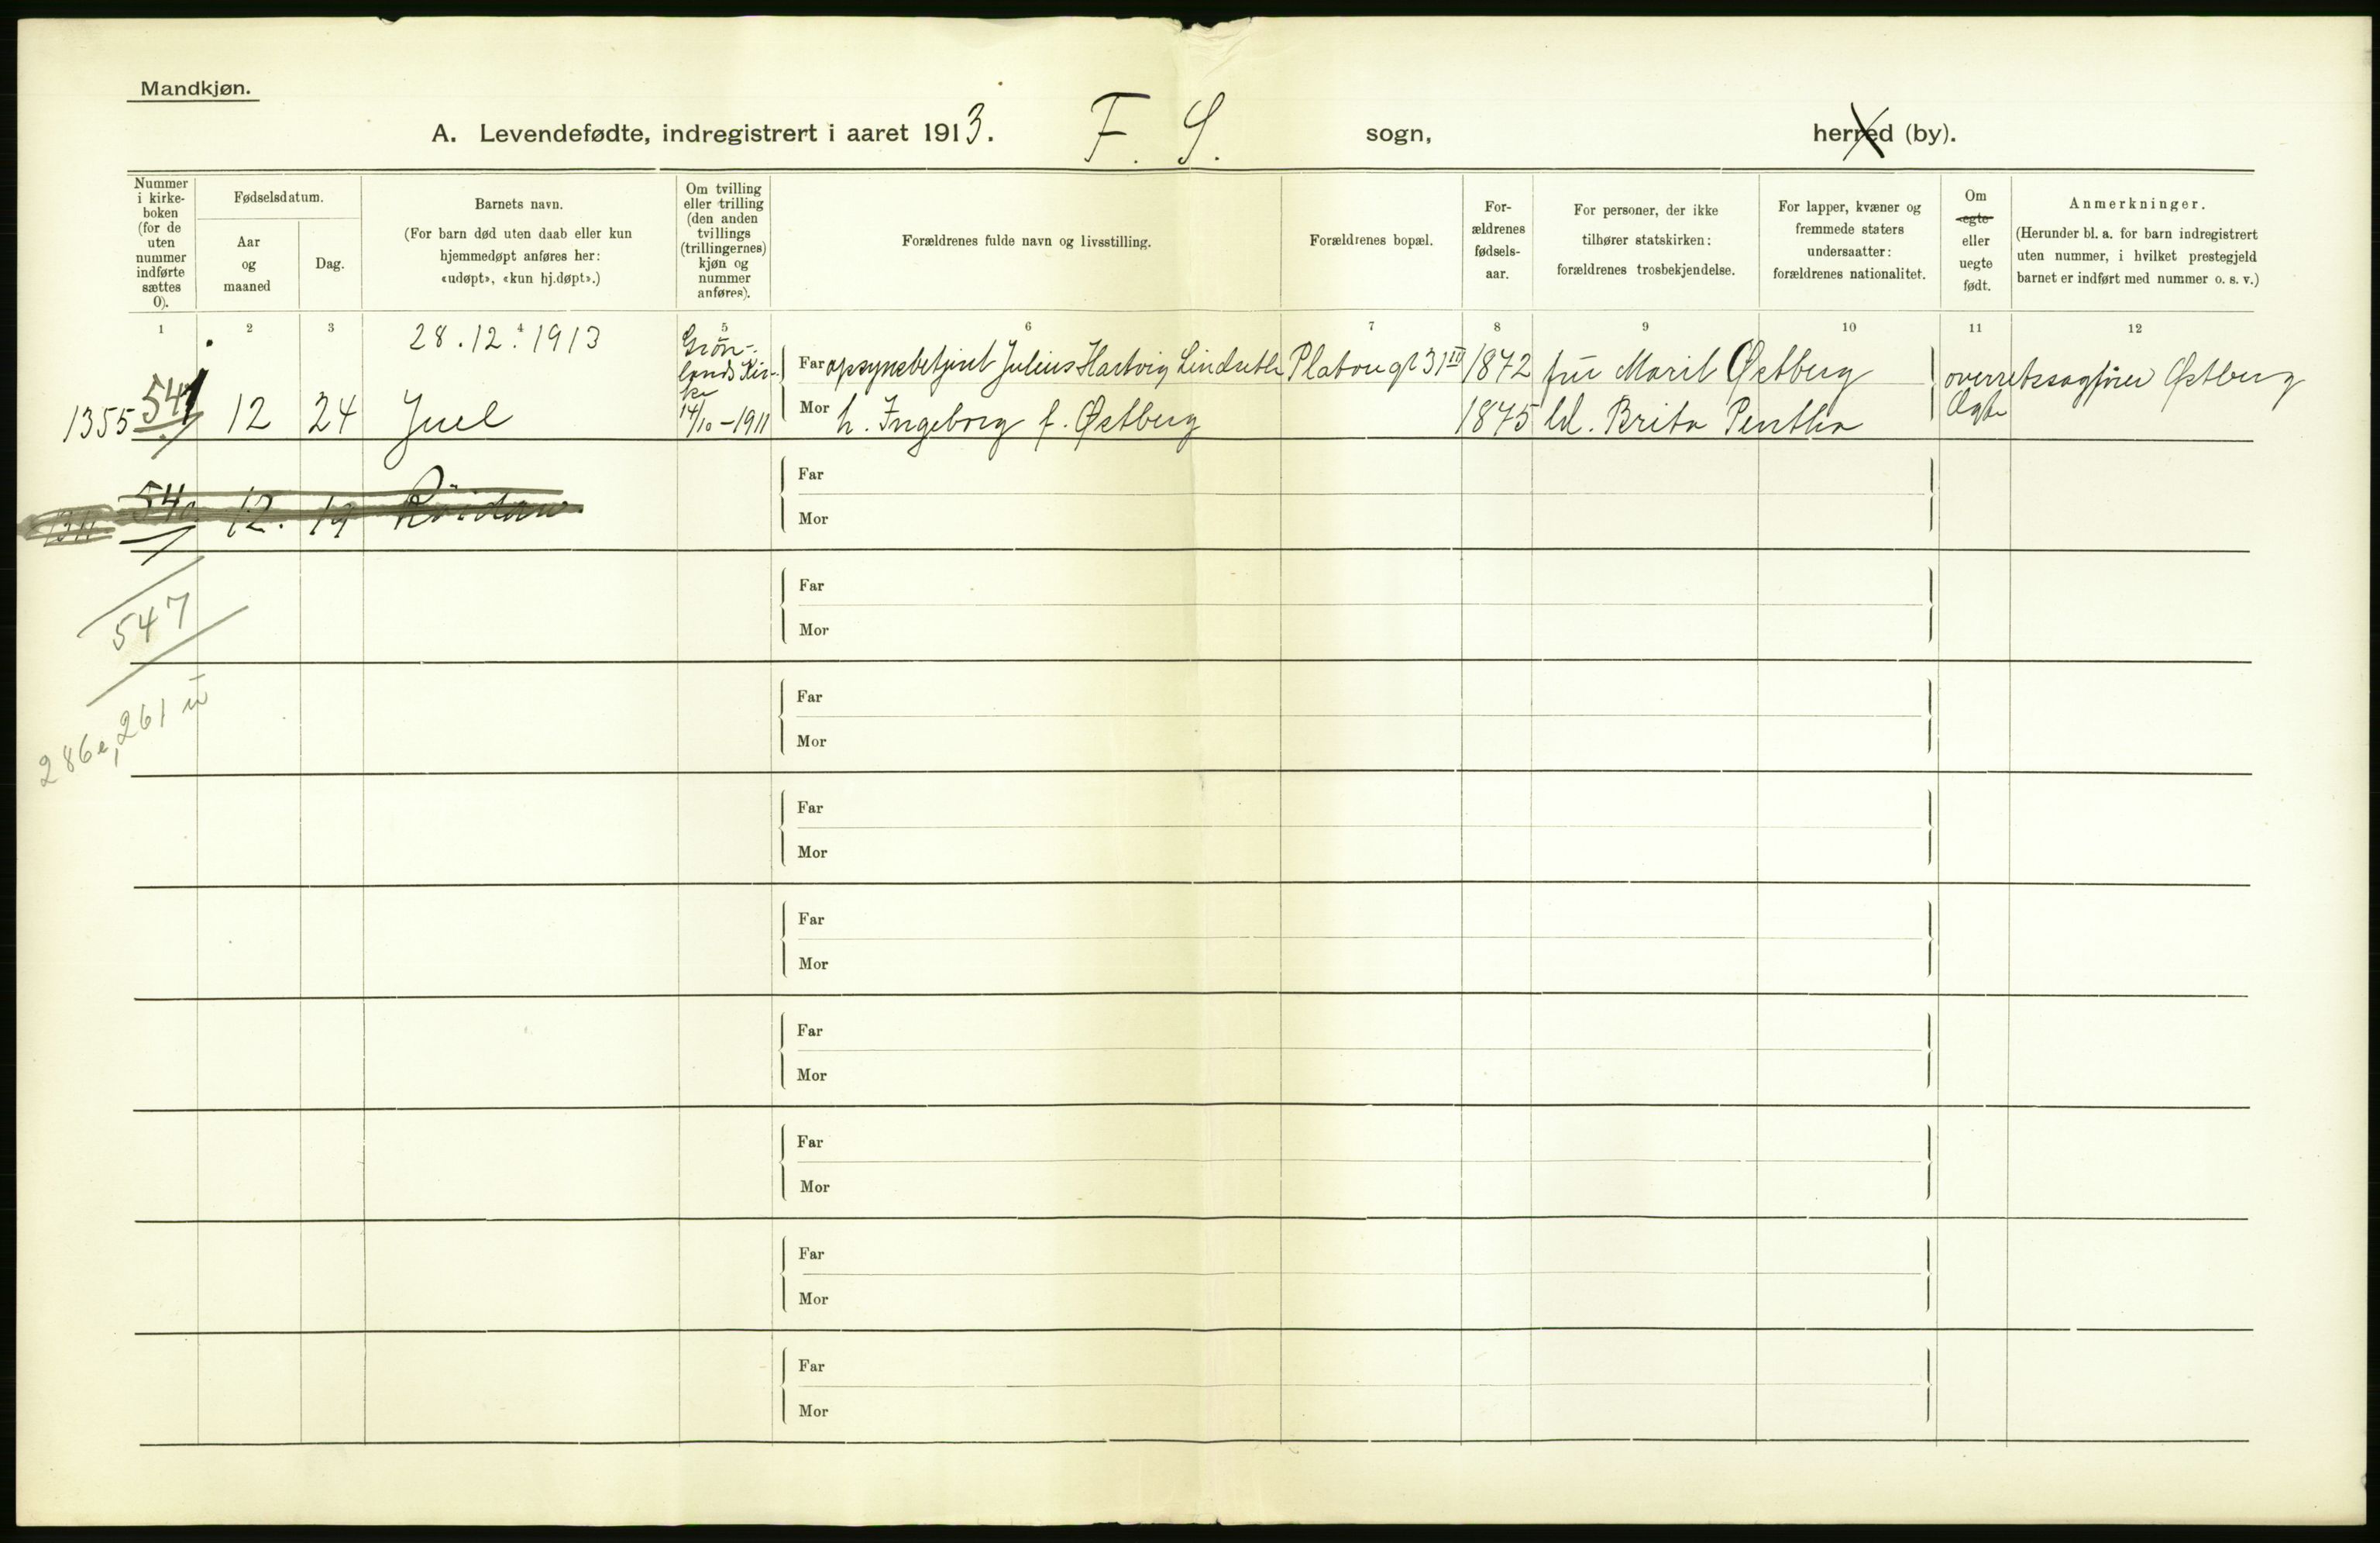 Mandkjøn.
A. Levendefødte, indregistrert i aaret 1913. F. S. sogn, herred (by).
Nummer i kirke-boken (for de uten nummer indførte sættes 0).
Fødselsdatum.
Aar og maaned
Dag.
Barnets navn.
(For barn død uten daab eller kun
hjemmedøpt anføres her:
«udøpt», «kun hj.døpt».)
Om tvilling
eller trilling
(den anden
tvillings
(trillingernes)
kjøn og
nummer
anføres).
Forældrenes fulde navn og livsstilling.
Forældrenes bopæl.
For-
ældrenes
fødsels-
aar.
For personer, der ikke
tilhører statskirken:
forældrenes trosbekjendelse.
For lapper, kvæner og
fremmede staters
undersaatter:
forældrenes nationalitet.
Om
egte
eller
uegte
født.
Anmerkninger.
(Herunder bl. a. for barn indregistrert
uten nummer, i hvilket prestegjeld
barnet er indført med nummer o. s. v.)
1 2 3 4 5 6 7 8 9 10 11 12
28.12.1913
Grøn-
lands Kir-
ke
14/10-1911
Far opsynsbetjent Julius Hartvig Lindseth Platou gt 31 III 1872 fru Marit Østberg overretssagfører Østberg
1355 541 12 24 Juel
Mor h. Ingeborg f. Østberg 1875 Brita Ægte
54 12. 19
Far
Mor
547
Far
Mor
286e, 261 u
Far
Mor
Far
Mor
Far
Mor
Far
Mor
Far
Mor
Far
Mor
Far
Mor